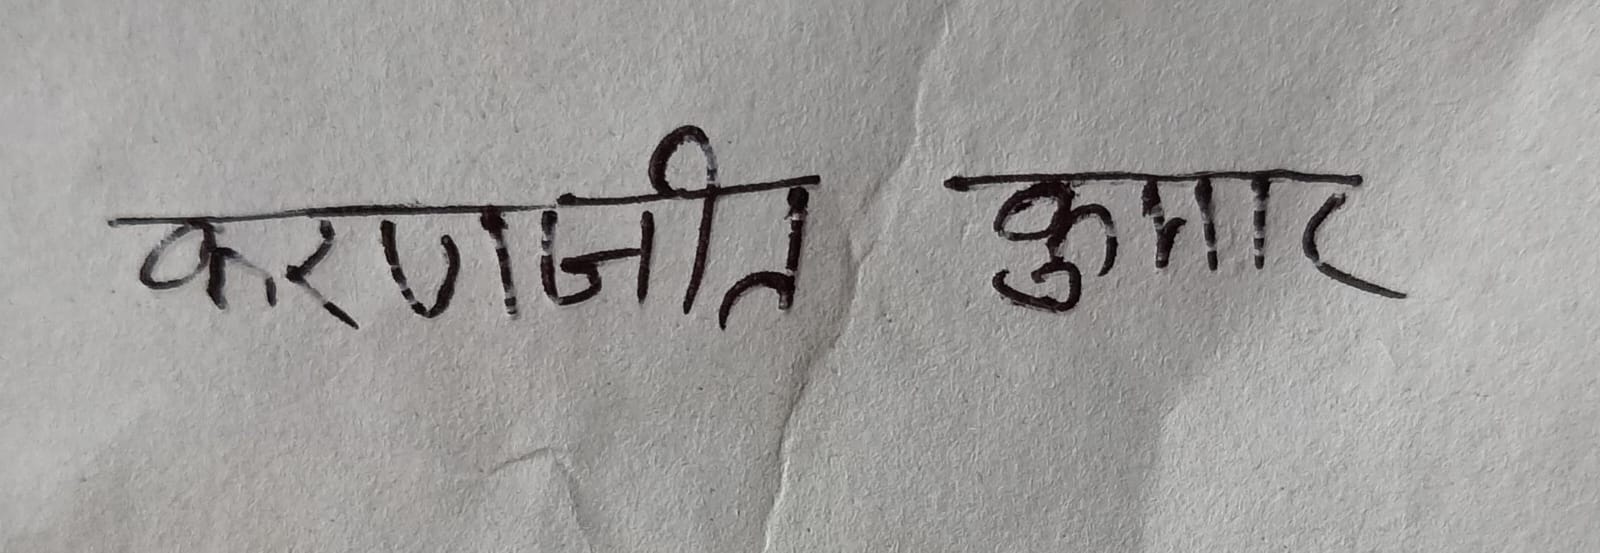 करणजीत कुमार